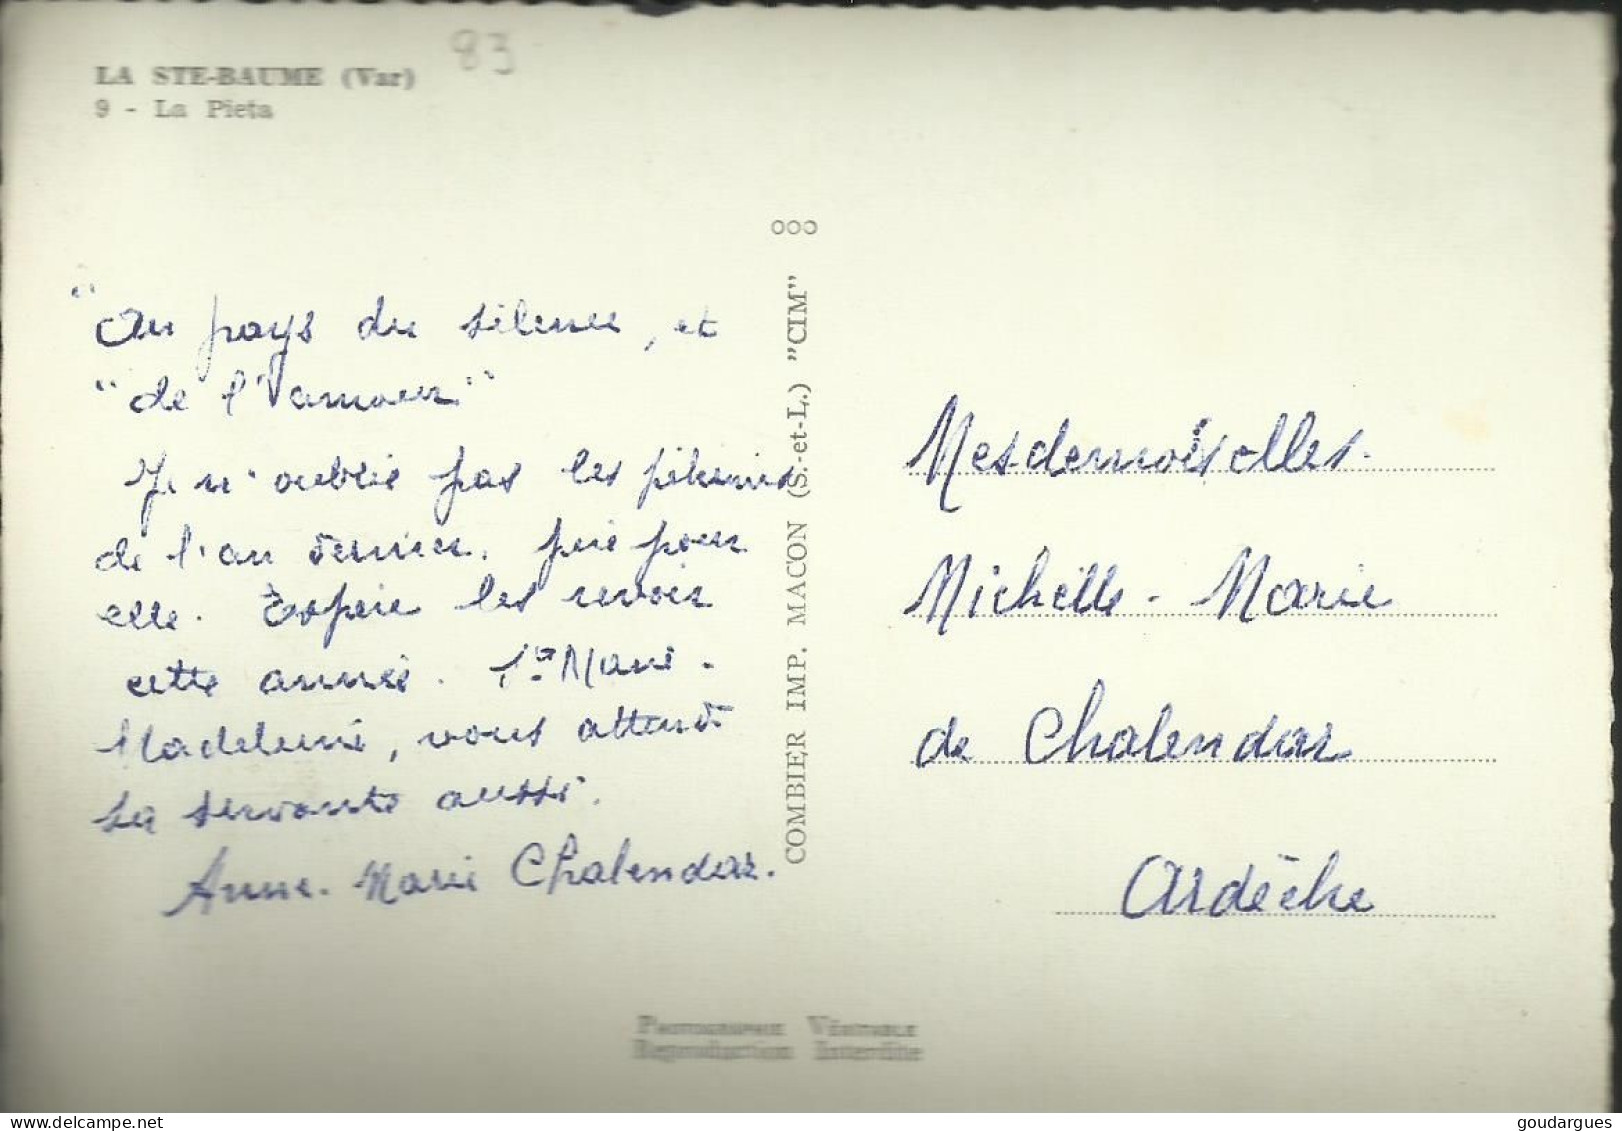 83
LA STE-BAUME (Var)
9 - La Pieta
"Au pays du silence, et
"de l'amour"
Je n'oublie pas les pèlerins
de l'an dernier. prie pour
elle. Espère les revoir
cette année. Ste Marie-
Madeleine, vous attend
sa servante aussi.
Anne-Marie Chalendar.
ooo
COMBIER IMP. MACON (S.-et-L.) "CIM"
Mesdemoiselles
Michelle-Marie
de Chalendar
Ardèche
Photographie Véritable
Reproduction Interdite
delcampe.net
goudargues